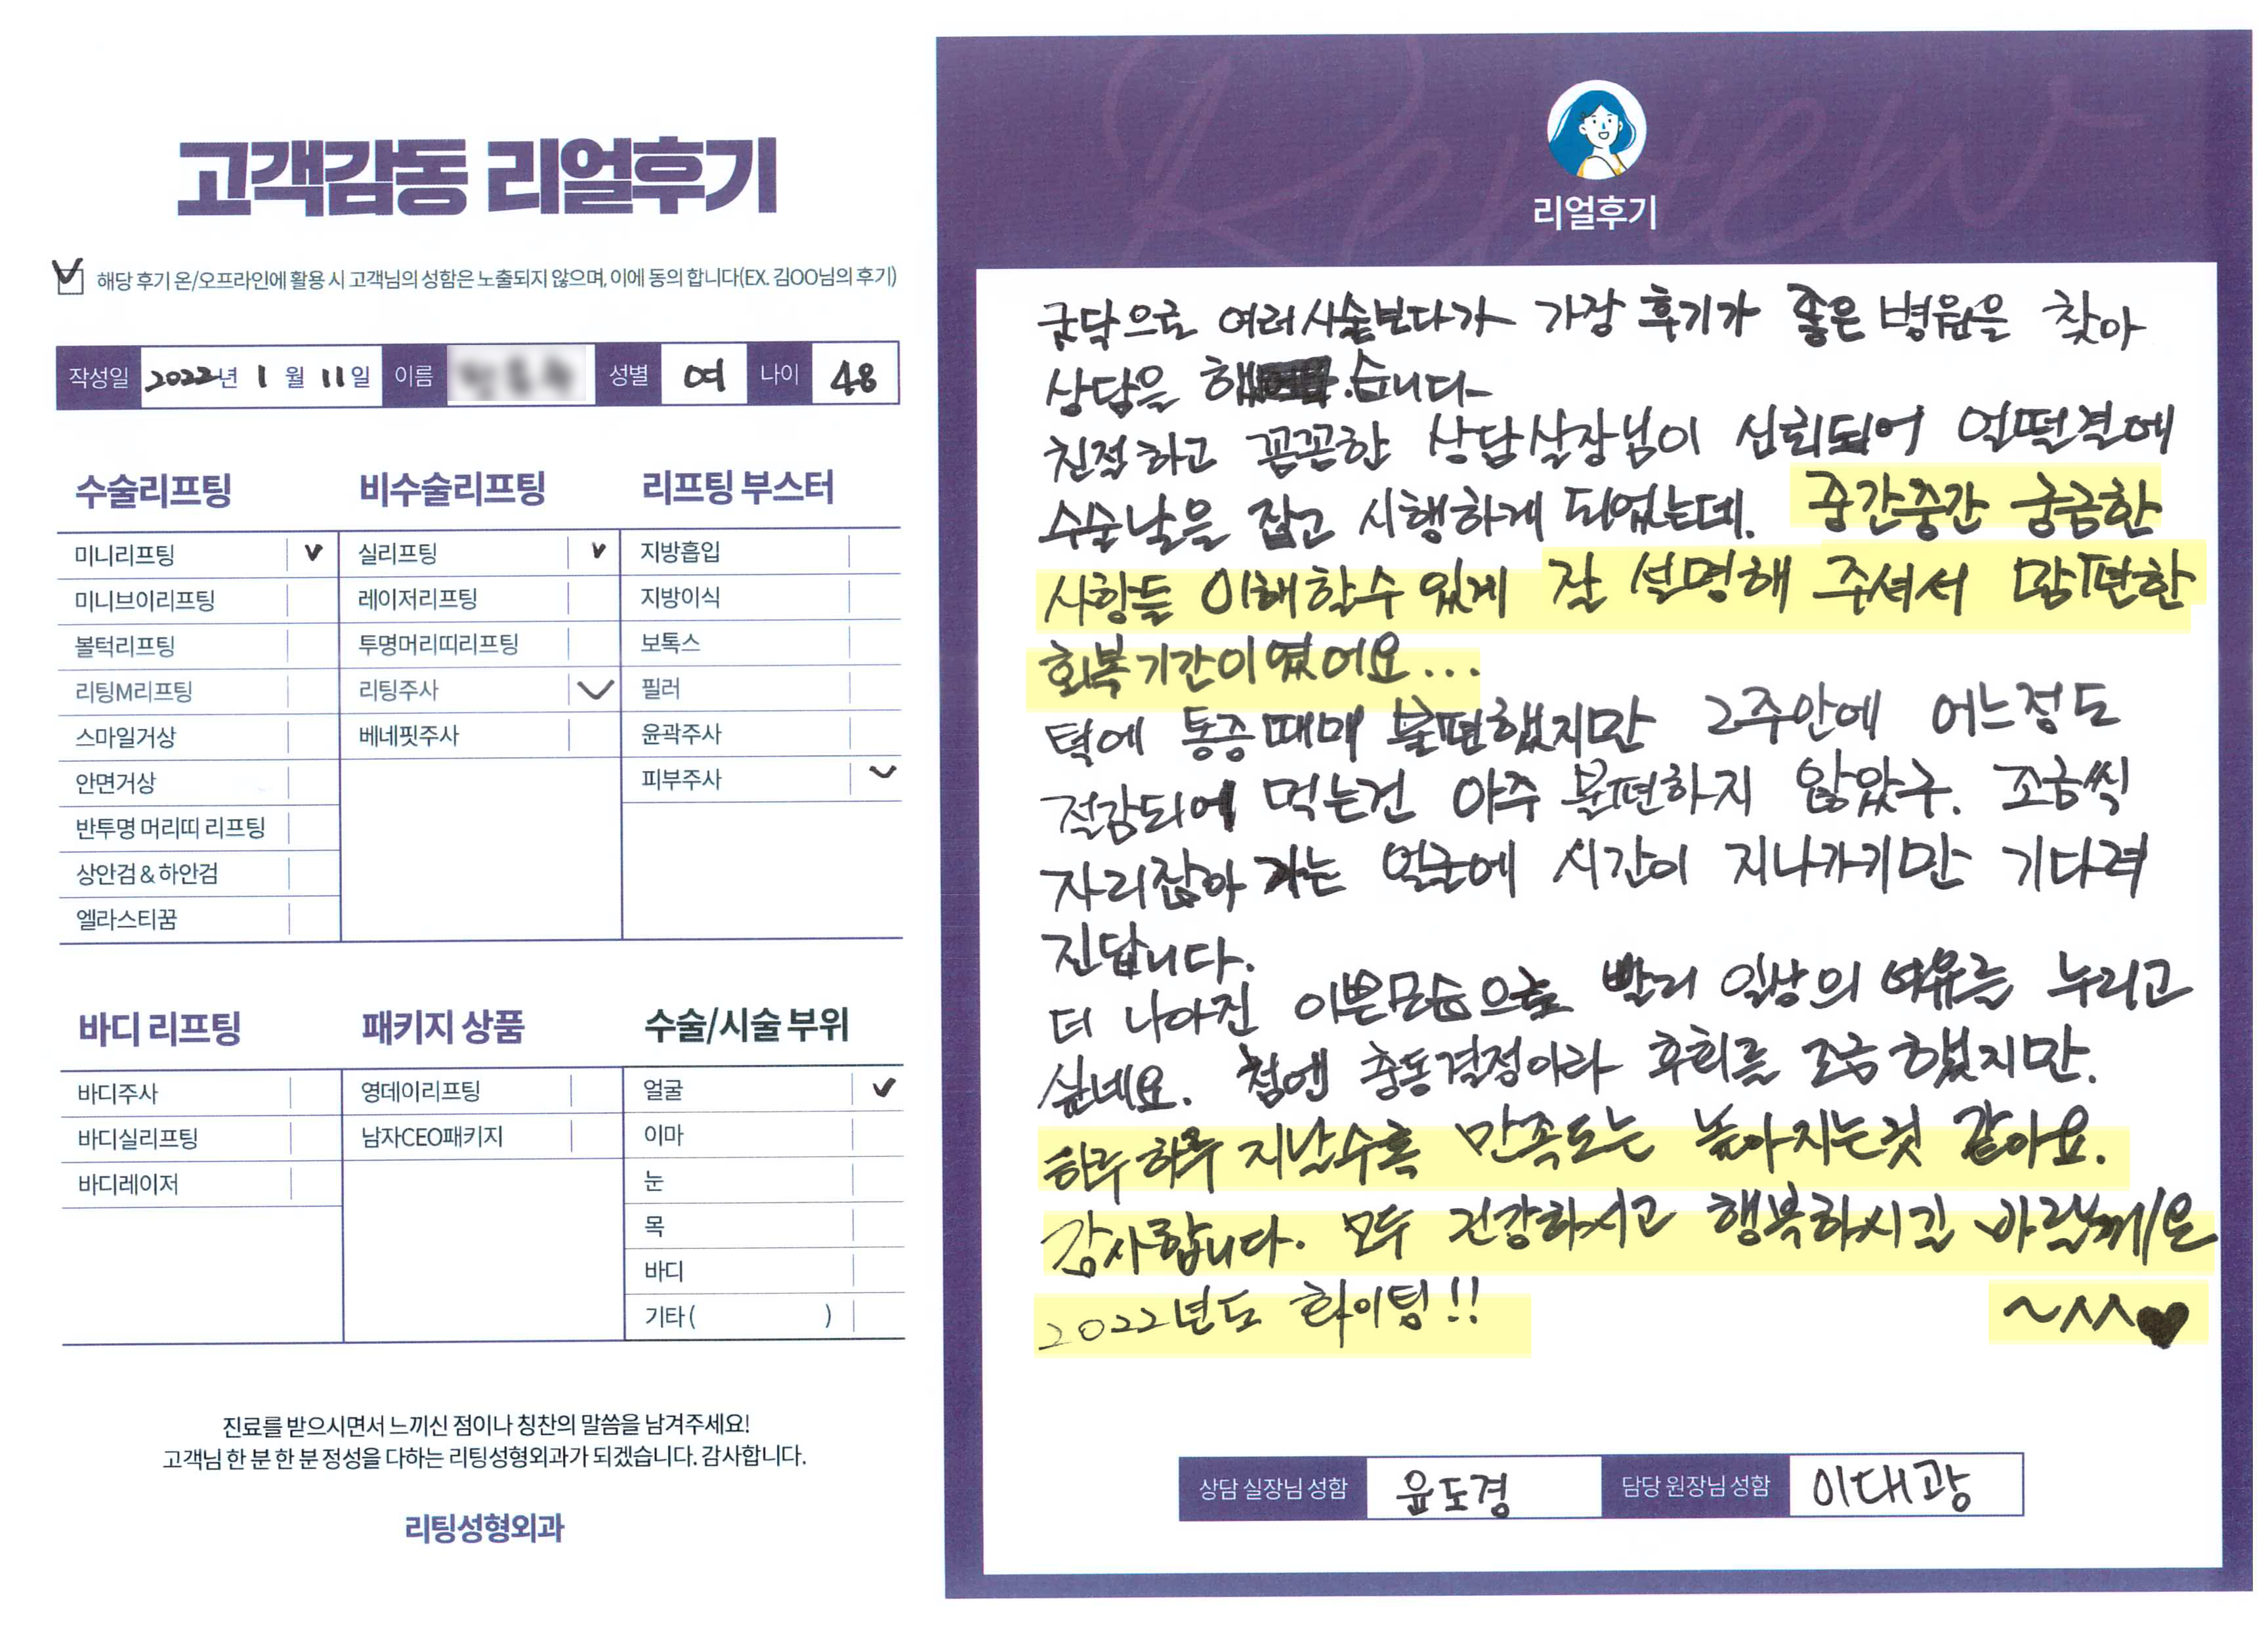 고객감동 리얼후기
해당 후기 온/오프라인에 활용 시 고객님의 성함은 노출되지 않으며, 이에 동의 합니다(EX. 김OO님의 후기)
작성일 2022년 1월 11일 이름 성별 여 나이 48
수술리프팅
미니리프팅
미니브이리프팅
볼턱리프팅
리팅M리프팅
스마일거상
안면거상
반투명 머리띠 리프팅
상안검 & 하안검
엘라스티꿈
비수술리프팅
실리프팅
레이저리프팅
투명머리띠리프팅
리팅주사
베네핏주사
리프팅 부스터
지방흡입
지방이식
보톡스
필러
윤곽주사
피부주사
바디 리프팅
바디주사
바디실리프팅
바디레이저
패키지 상품
영데이리프팅
남자CEO패키지
수술/시술 부위
얼굴
이마
눈
목
바디
기타 ( )
진료를 받으시면서 느끼신 점이나 칭찬의 말씀을 남겨주세요!
고객님 한 분 한 분 정성을 다하는 리팅성형외과가 되겠습니다. 감사합니다.
리팅성형외과
Review
리얼후기
굿닥으로 여러시술보다가 가장 후기가 좋은 병원을 찾아
상담을 했습니다
친절하고 꼼꼼한 상담실장님이 신뢰되어 얼떨결에
수술날을 잡고 시행하게 되었는데. 중간중간 궁금한
사항들 이해할수 있게 잘 설명해 주셔서 맘편한
회복기간이였어요...
턱에 통증때매 불편했지만 2주안에 어느정도
절감되어 먹는건 아주 불편하지 않았구. 조금씩
자리잡아 가는 얼굴에 시간이 지나가기만 기다려
진답니다.
더 나아진 이쁜모습으로 빨리 일상의 여유를 누리고
싶네요. 첨엔 충동결정이라 후회를 조금 했지만.
하루하루 지날수록 만족도는 높아지는것 같아요.
감사합니다. 모두 건강하시고 행복하시길 바랄께요
~^^♥
2022년도 화이팅!!
상담 실장님 성함 윤도경 담당 원장님 성함 이대광